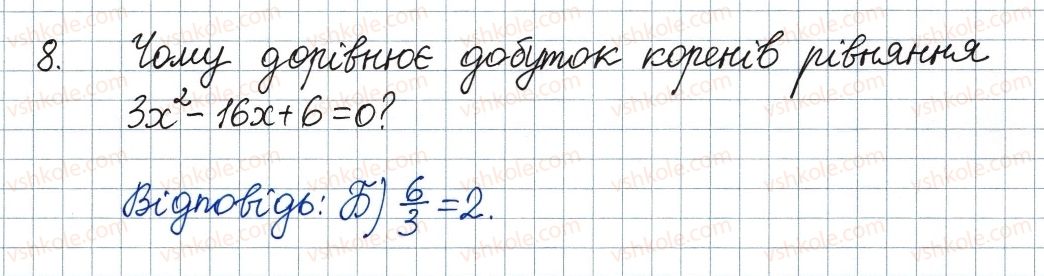 8. Чому дорівнює добуток коренів рівняння
3x² - 16x + 6 = 0?
Відповідь: Б) 6/3 = 2.